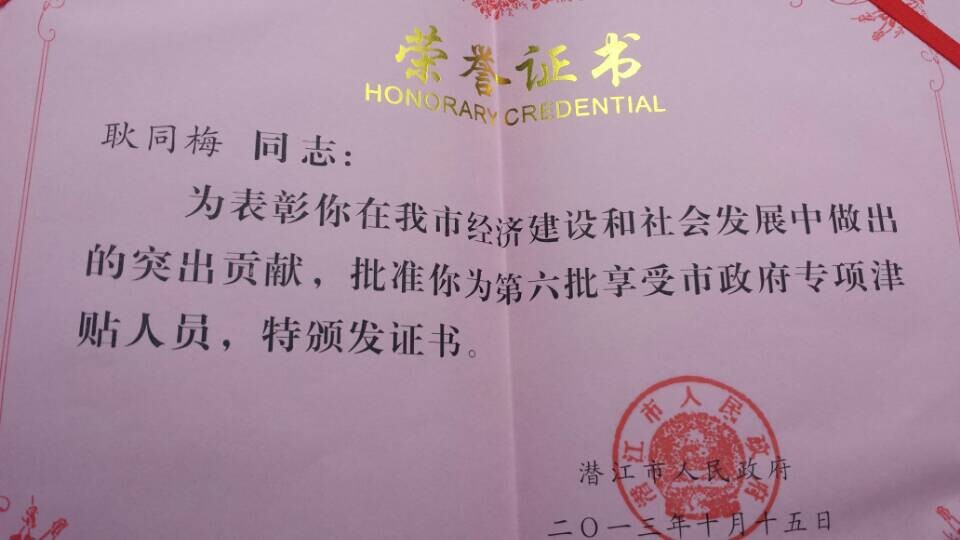 荣誉证书
HONORARY CREDENTIAL
耿同梅 同志：
为表彰你在我市经济建设和社会发展中做出
的突出贡献，批准你为第六批享受市政府专项津
贴人员，特颁发证书。
潜江市人民政府
潜江市人民政府
二〇一三年十月十五日